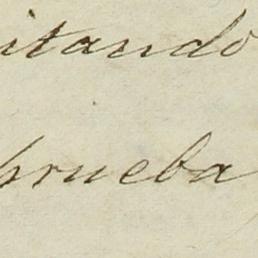 itando
prueba